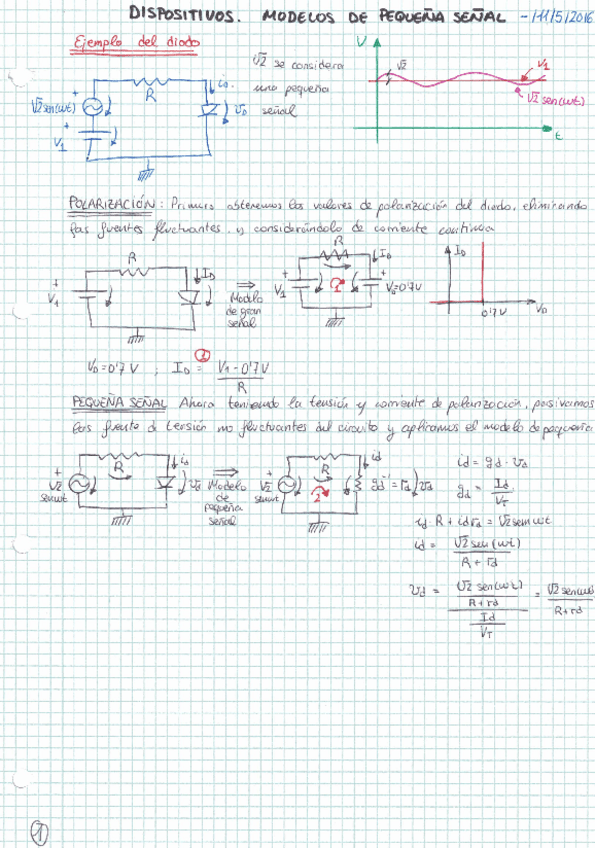 DISPOSITIVOS. MODELOS DE PEQUEÑA SEÑAL - 11/5/2016
Ejemplo del diodo
√2 se considera
una pequeña
señal
√2 sen(ωt)
+
V1
+
R
iD
vD
V
√2
V1
√2 sen(ωt)
t
POLARIZACIÓN: Primero obtenemos los valores de polarización del diodo, eliminando
las fuentes fluctuantes y considerándolo de corriente continua
R
+
V1
ID
⇒
Modelo
de gran
señal
R
+
V1
1
ID
+
Vd=0'7V
ID
0'7V
VD
VD=0'7 V ; ID = (1) V1-0'7V
R
PEQUEÑA SEÑAL Ahora teniendo la tensión y corriente de polarización, pasivamos
las fuente de tensión no fluctuantes del circuito y aplicamos el modelo de pequeña
+
√2
senωt
R
id
vd
⇒
Modelo
de
pequeña
señal
+
√2
senωt
R
2
id
gd⁻¹=rd
vd
id = gd · vd
gd = Id
VT
id · R + id rd = √2 senωt
id = √2 sen(ωt)
R + rd
vd = √2 sen(ωt)
R+rd
Id
VT
= √2 sen(ωt
R+rd
1